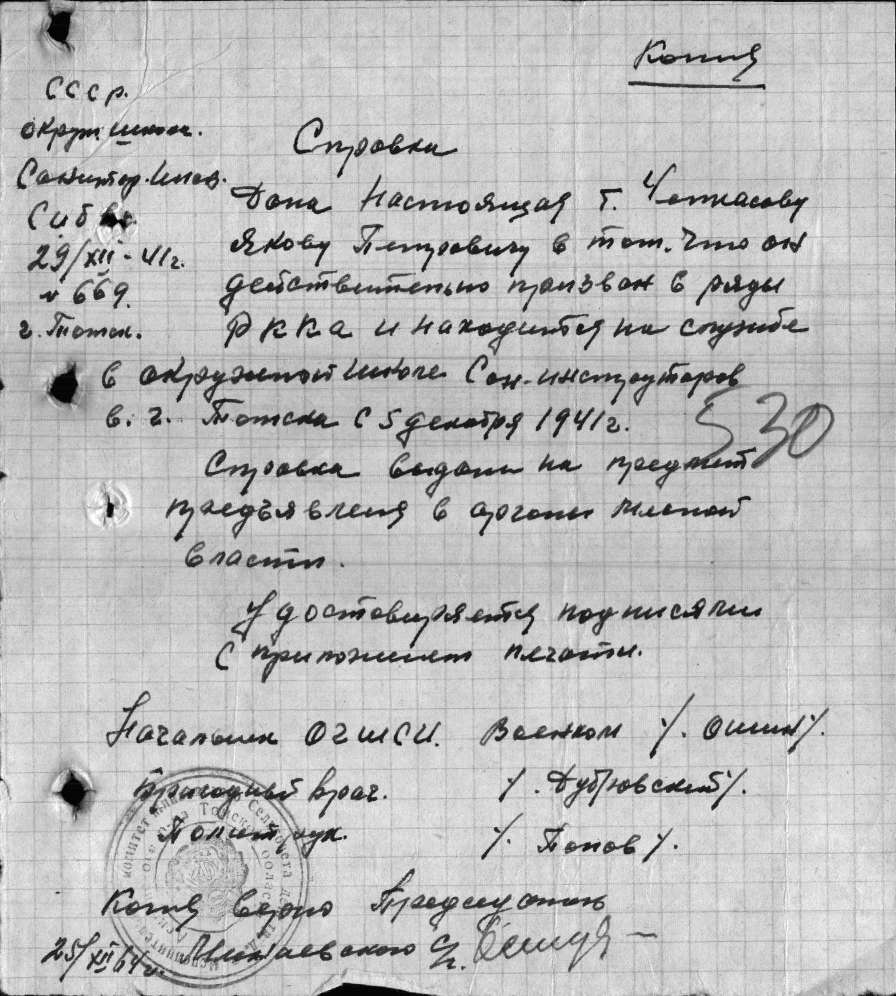 Копия
СССР.
окруж. школа.
Санитар. Инс.
Сиб
29/XII - 41 г.
№ 669.
г. Томск.
Справка
Дана настоящая т. Черкасову
Якову Петровичу в том. что он
действительно призван в ряды
РККА и находится на службе
в окружной школе Сан-инструкторов
в. г. Томска с 5 декабря 1941 г.
530
Справка выдана на предмет
предъявления в органы местной
власти.
Удостоверяется подписями
с приложением печати.
Начальник ОГШСИ. Военком /. Ошин /.
врач. /. Дубровский /.
Политрук. /. Попов /.
Копия верно Председатель
25/XII 64 г. с/с.